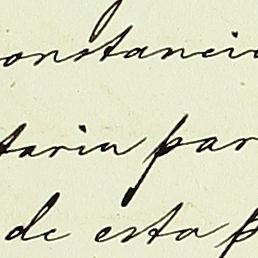 onstancia
taria par
de esta p